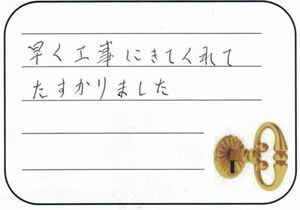 早く工事にきてくれて
たすかりました